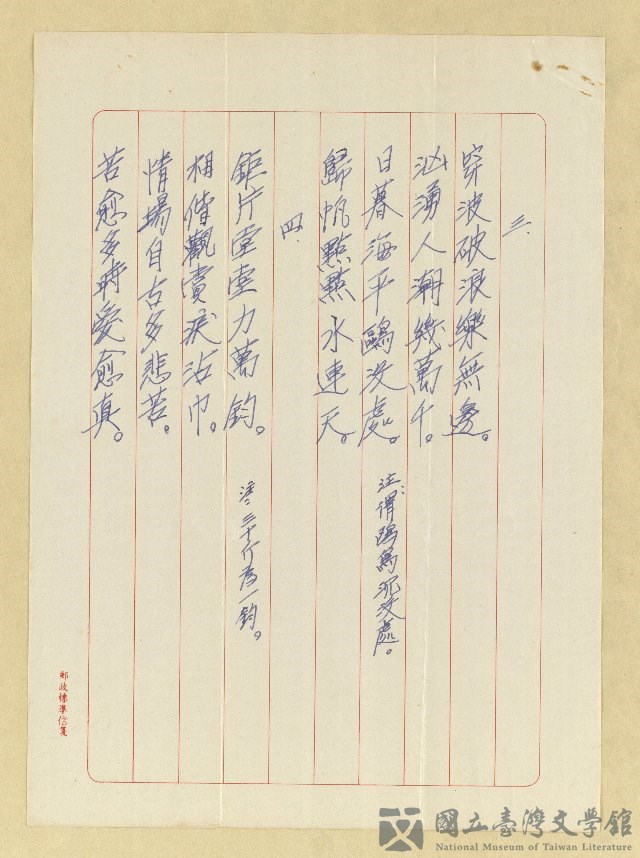 三.
穿波破浪樂無邊。
洶湧人潮幾萬千。
日暮海平鷗没處。 注:謂鷗鳥沉没處。
歸帆點點水連天。
四.
鉅片堂堂力萬鈞。 注:三十斤為一鈞。
相偕觀賞淚沾巾。
情場自古多悲苦。
苦愈多時愛愈真。
郵政標準信箋
國立臺灣文學館
National Museum of Taiwan Literature